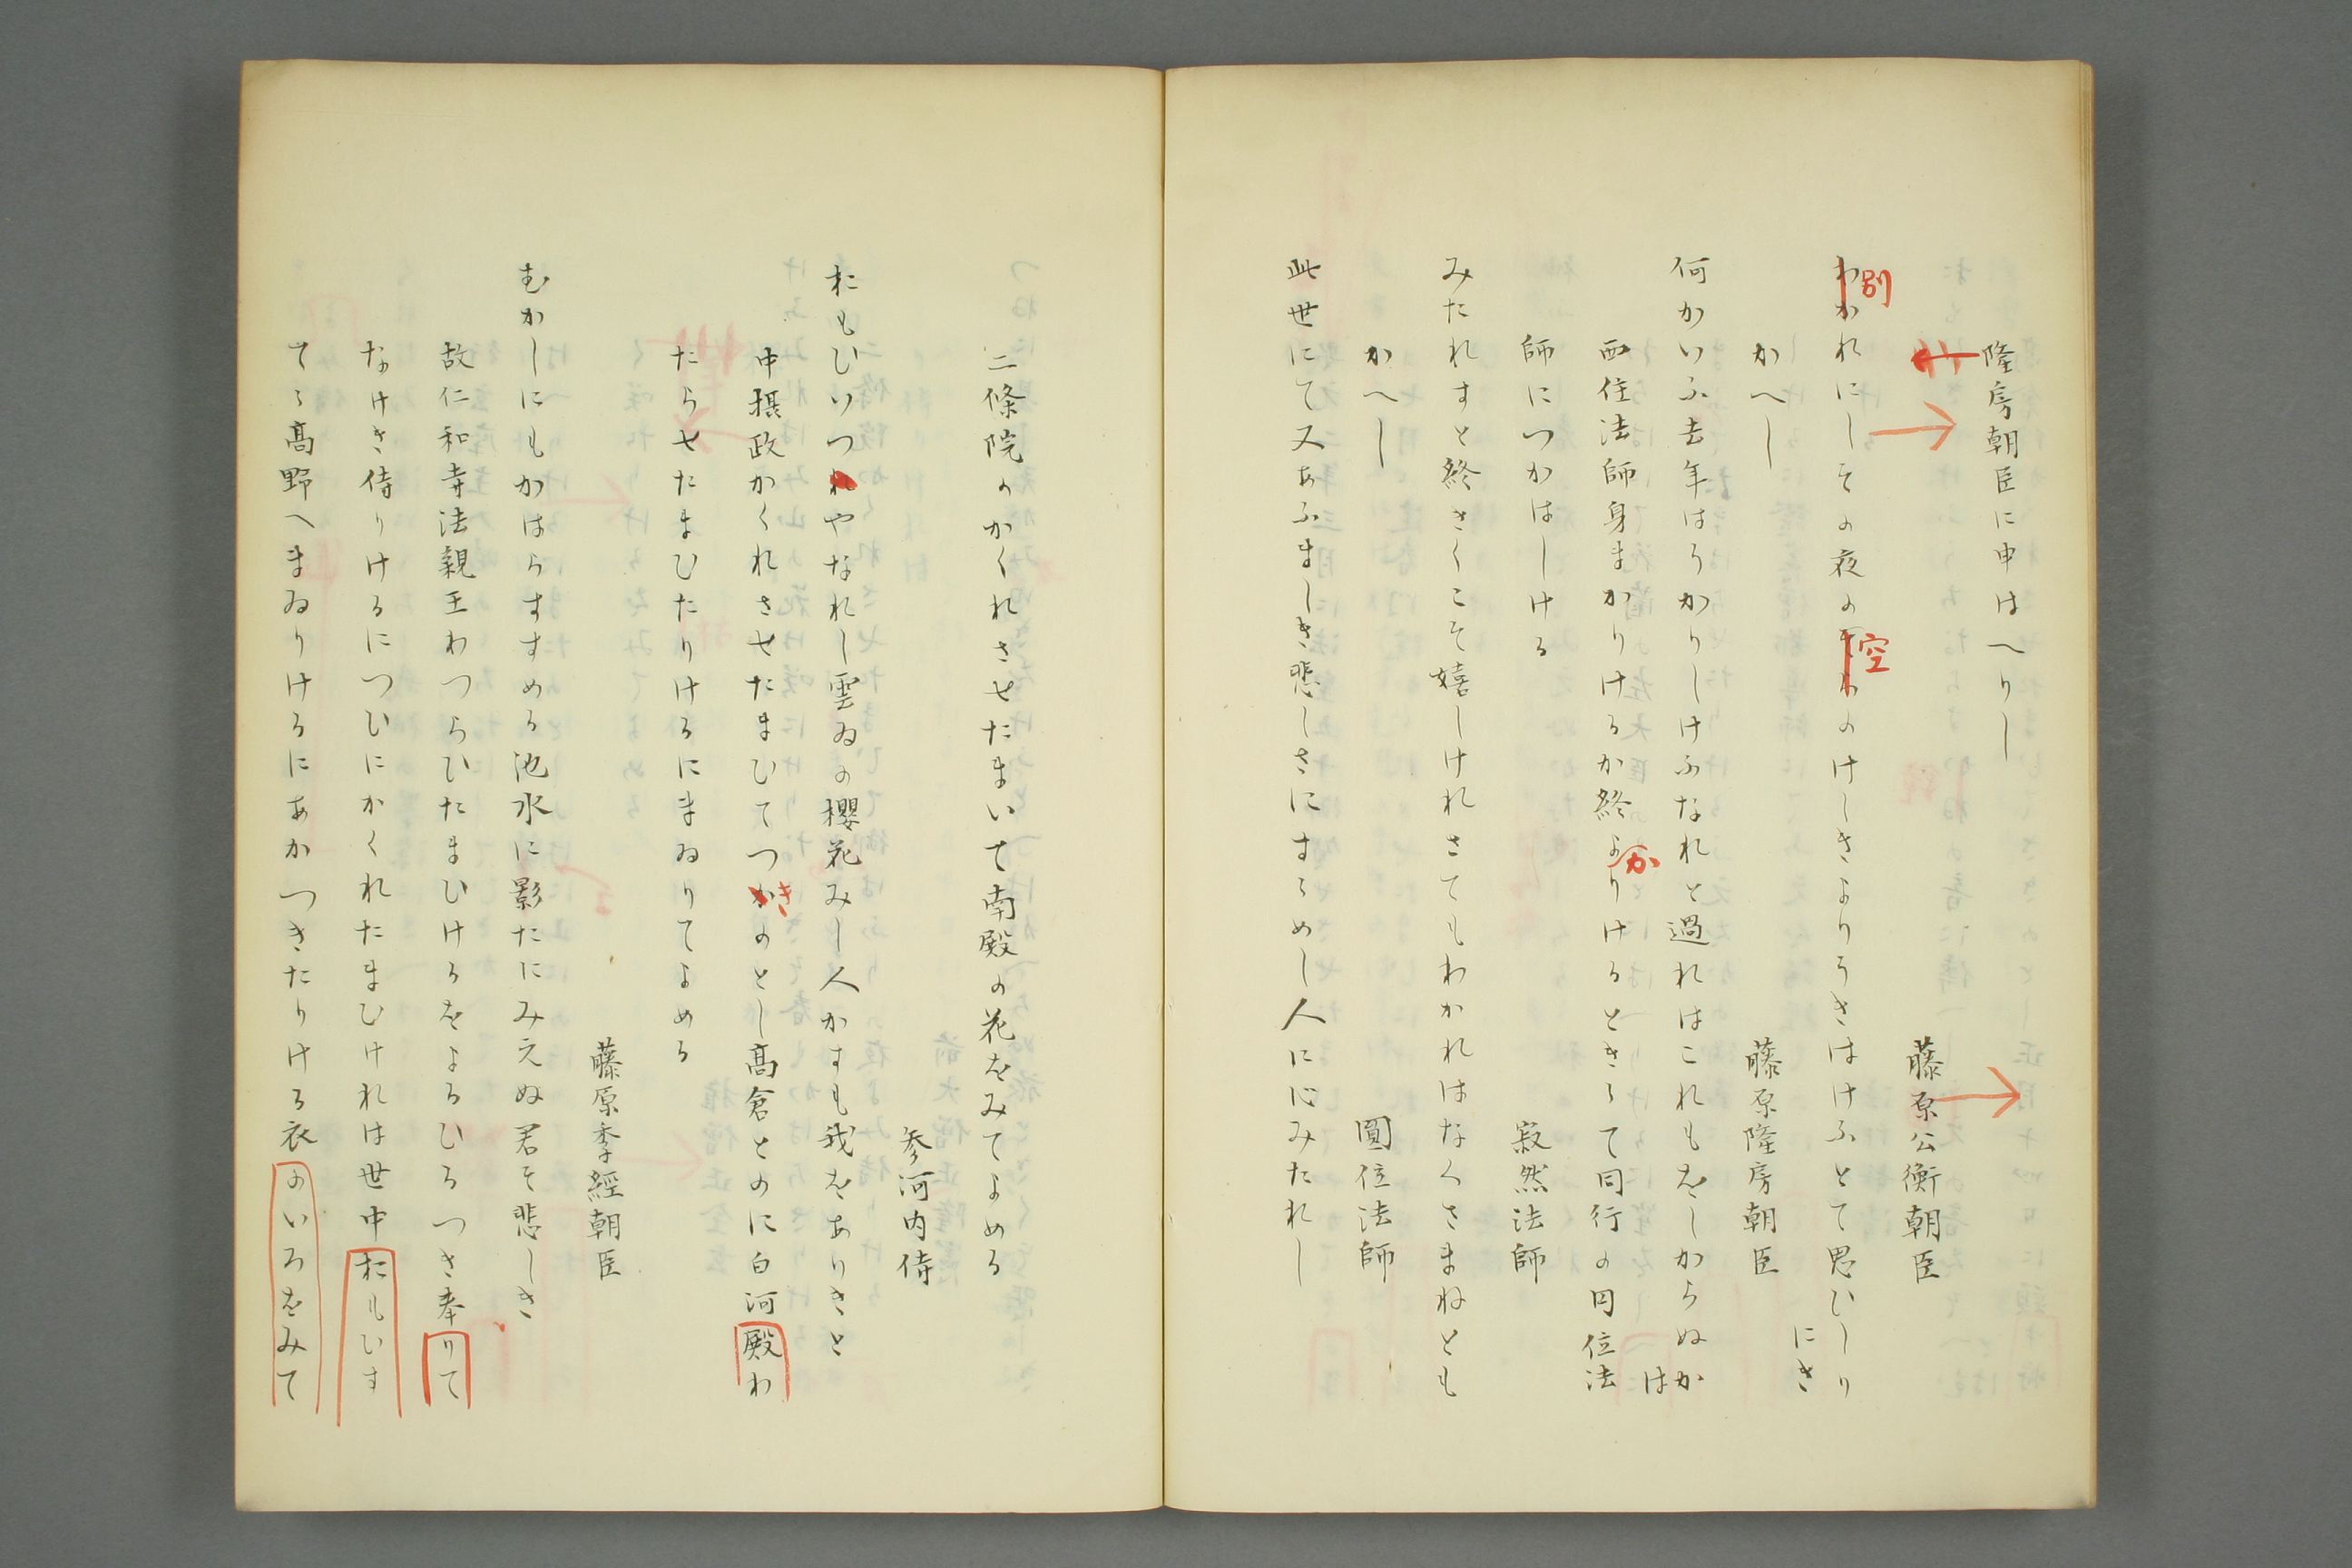 隆房朝臣に申はへりし
藤原公衡朝臣
わかれにしその夜のそらのけしきよりうきはけふとて思ひしり
別
空
にき
かへし
藤原隆房朝臣
何かいふ去年はうかりしけふなれと過れはこれもをしからぬか
は
西住法師身まかりけるか終よりけるときゝて同行の円位法
か
師につかはしける
寂然法師
みたれすと終きくこそ嬉しけれさてもわかれはなくさまねとも
かへし
圓位法師
此世にて又あふましき悲しさにすゝめし人に心みたれし
二條院のかくれさせたまいて南殿の花をみてよめる
参河内侍
おもひいつれやなれし雲ゐの櫻花みし人かすも我をありきと
中摂政かくれさせたまひてつかのとし髙倉とのに白河殿わ
き
たらせたまひたりけるにまゐりてよめる
藤原季經朝臣
むかしにもかはらすすめる池水に影たにみえぬ君そ悲しき
故仁和寺法親王わつらひたまひけるをよろひろつき奉りて
なけき侍りけるにつひにかくれたまひけれは世中おもひす
てゝ髙野へまゐりけるにあかつきたりける衣のいろをみて